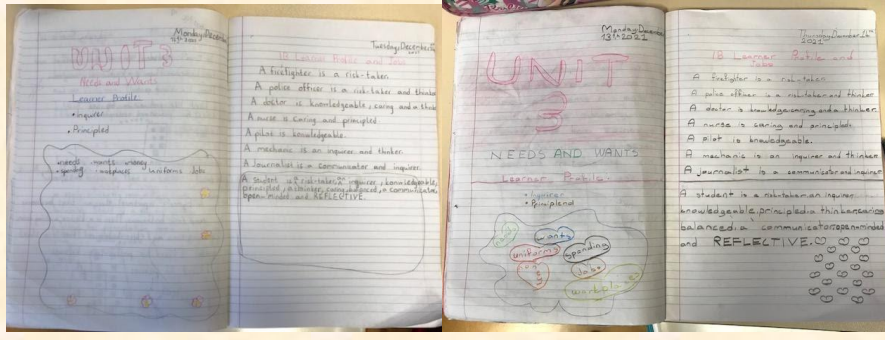 Monday, Decem
13th 2021
UNIT 3
Needs and Wants
Learner Profile
• inquirer
• Principled
needs wants money
spending workplaces uniforms Jobs
Tuesday, December
IB Learner Profile and Jobs
A firefighter is a risk-taker.
A police officer is a risk-taker and thinke
A doctor is knowledgeable, caring and a think
A nurse is caring and principled
A pilot is knowledgeable.
A mechanic is an inquirer and thinker.
A Journalist is a communicator and inquirer.
A student is a risk-taker, an inquirer, knowledgeable,
principled, a thinker, caring, balanced, a communicator
open-minded and REFLECTIVE.
Monday, Decem
13th 2021
UNIT
3
NEEDS AND WANTS
Learner Profile:
• Inquirer
• Principlend
wants
uniforms
spending
Jobs
workplaces
Thursday, December 16th
2021
IB Learner Profile and
Jobs
A firefighter is a risk-taker.
A police officer is a risk-taker and thinker
A doctor is knowledge,caring and a thinker.
A nurse is caring and principled.
A pilot is knowledgeable.
A mechanic is an inquirer and thinker
A journalist is a communicator and inquirer
A student is a risk-taker,an inquirer,
knowledgeable,principled,a thinker,caring
balanced,a communicator,open-minded
and REFLECTIVE.